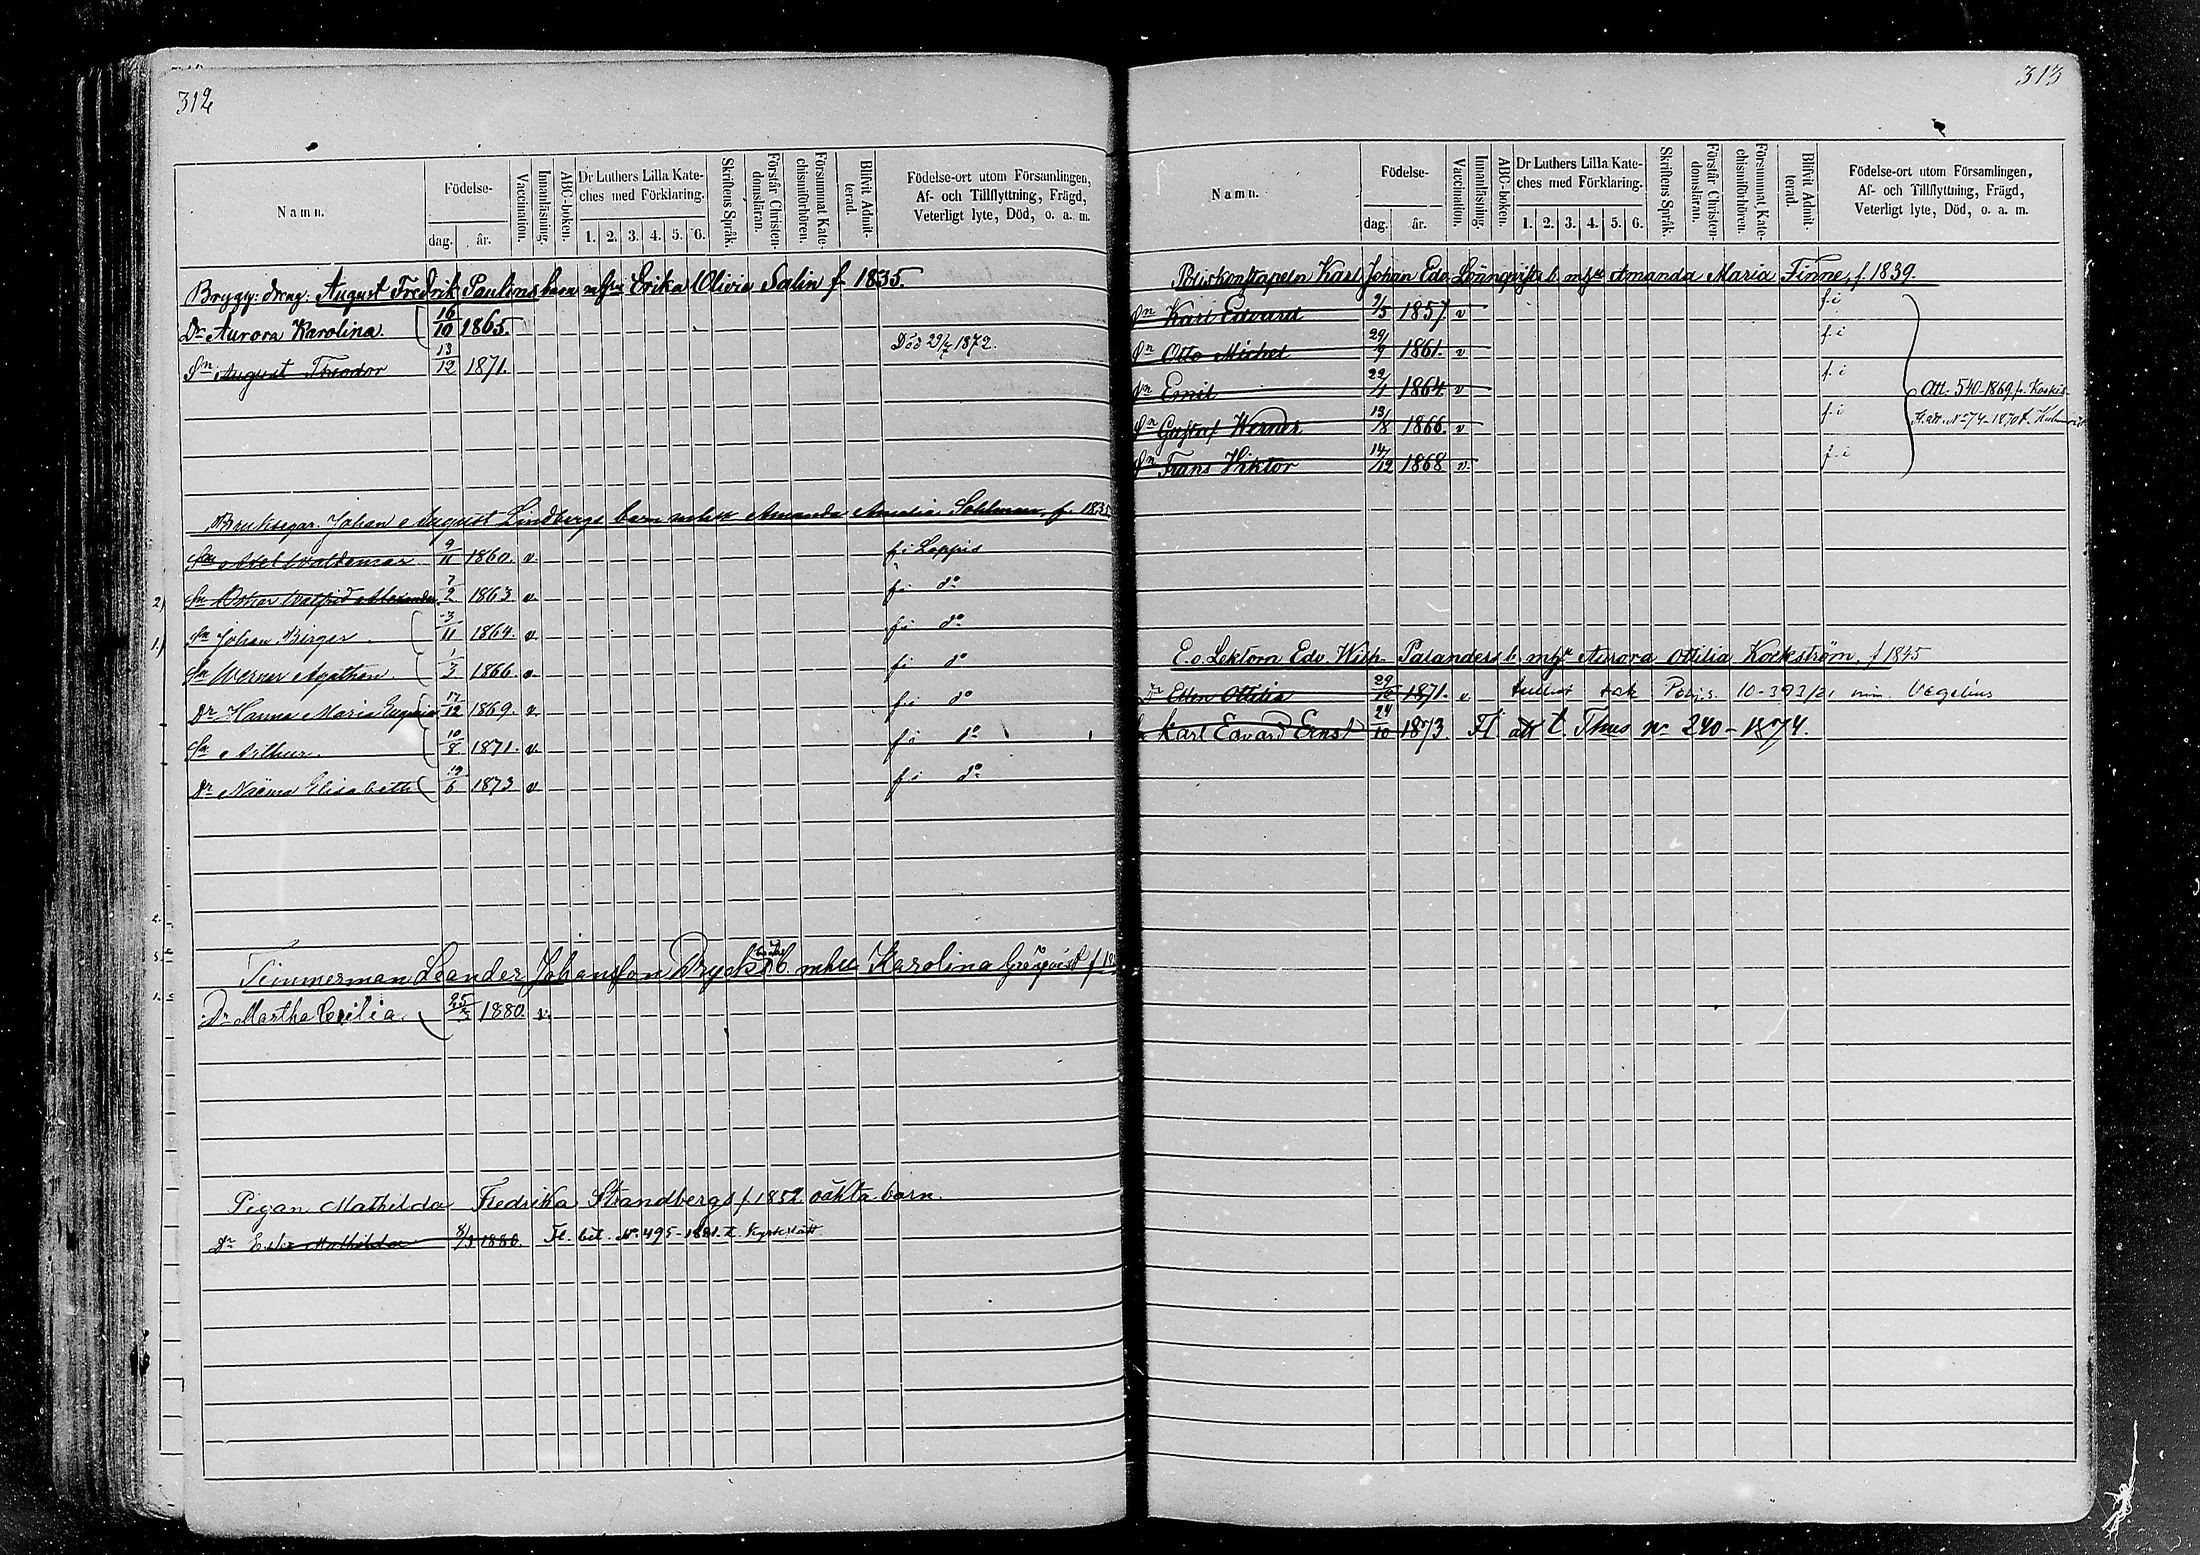 312
Namn.
Födelse-
dag. år.
Vaccination.
Innanläsning.
ABC-boken.
Dr Luthers Lilla Kate-
ches med Förklaring.
1. 2. 3. 4. 5. 6.
Skriftens Språk.
Förstår Christen-
domsläran.
Försummat Kate-
chismiförhören.
Blifvit Admit-
terad.
Födelse-ort utom Församlingen,
Af- och Tillflyttning, Frägd,
Veterligt lyte, Död, o. a. m.
Brygg: dreng: August Fredrik Paulins barn mhu Erika Olivia Salin f 1835.
Dr Aurora Karolina. 16/10 1865.
Sn August Theodor 13/12 1871. Död 29/7 1872.
Bruksegar. Johan August Lindbergs barn mhu Amanda Amalia Sohlman, f. 183
Sn Axel Waldemar 9/11 1860. v f. i Loppis
2) Sn Oskar Walfrid Alexander 7/2 1863 v f. i do
1.) Sn Johan Birger 3/11 1864. v f. i do
Sn Werner Agathon 1/3 1866. v f. i do
Dr Hanna Maria Eugenia 17/12 1869. v f. i do
Sn Arthur. 10/8 1871. v f. i do
Dr Naëma Elisabeth 19/6 1873 v f. i do
Timmerman Leander Johansson Dryck b. mhu Karolina Grönqvist f 18
Dr Martha Cecilia 25/3 1880. v.
Pigan Mathilda Fredrika Strandbergs f. 1852 oäkta barn.
Dr Ester Mathilda 8/3 1880. Fl. bet. No 495-1881. t. Kyrkslätt
313
Namn.
Födelse-
dag. år.
Vaccination.
Innanläsning.
ABC-boken.
Dr Luthers Lilla Kate-
ches med Förklaring.
1. 2. 3. 4. 5. 6.
Skriftens Språk.
Förstår Christen-
domsläran.
Försummat Kate-
chismiförhören.
Blifvit Admit-
terad.
Födelse-ort utom Församlingen,
Af- och Tillflyttning, Frägd,
Veterligt lyte, Död, o. a. m.
Poliskonstapeln Karl Johan Edv. Lönnqvists b. mhu Amanda Maria Finne, f 1839.
Sn Karl Edvard 9/5 1857. v f. i
Sn Otto Michel 29/9 1861. v f. i
Sn Emil 22/1 1864. v f. i
Att. 540-1869 fr. Koskis
Sn Gustaf Werner 13/8 1866. v f. i
Fl. att. No 74-1870 t.
Sn Frans Viktor 14/12 1868 v. f. i
E. o. Lektorn Edv. Wilh. Palanders b. mhu Aurora Ottilia Kockström, f 1845
Dr Ellen Ottilia 29/10 1871. v 10-393/21 Vegelius
Karl Edvard Ernst 24/10 1873. Fl att t. Thus no 240-1874.